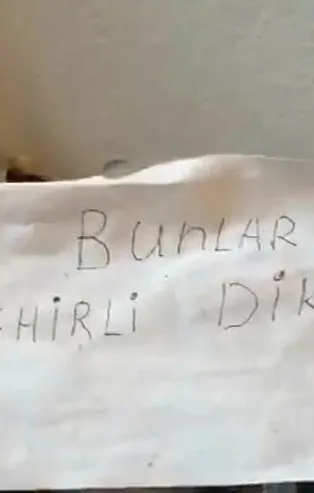 BUNLAR
HİRLİ DİK